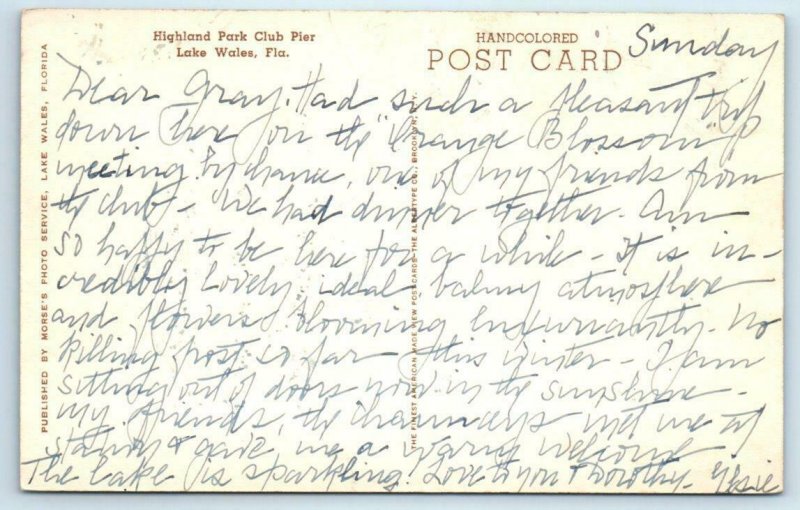 Highland Park Club Pier
Lake Wales, Fla.
HANDCOLORED
POST CARD
PUBLISHED BY MORSE'S PHOTO SERVICE, LAKE WALES, FLORIDA
THE FINEST AMERICAN MADE VIEW POST CARDS—THE ALBERTYPE CO., BROOKLYN, N.Y.
Sunday
Dear Gray. Had such a pleasant trip
down here on the "Orange Blossom"
meeting by chance, one of my friends from
the club - We had dinner together. Am
so happy to be here for a while - It is in-
credibly lovely, ideal, balmy atmosphere
and flowers blooming luxuriantly. No
killing frost so far this winter - I am
sitting out of doors now in the sunshine -
my friends, the Chaunceys met me at
station & gave me a warm welcome
The lake is sparkling. Love to you & Dorothy - Elsie